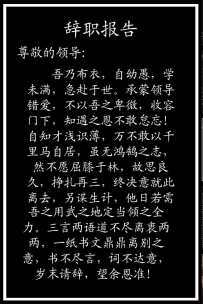 辞职报告
尊敬的领导:
吾乃布衣，自幼愚，学
未满，急赴于世。承蒙领导
错爱，不以吾之卑微，收容
门下，知遇之恩不敢忽忘!
自知才浅识薄，万不敢以千
里马自居，虽无鸿鹄之志，
然不愿屈膝于林，故思良
久，挣扎再三，终决意就此
离去，另谋生计，他日若需
吾之用武之地定当倾之全
力。三言两语道不尽离衷两
两，一纸书文鼎鼎离别之
意，书不尽言，词不达意，
岁末请辞，望余恩准!